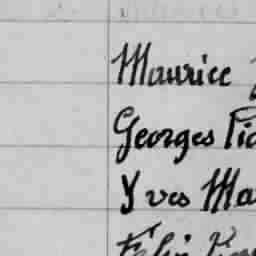 Maurice
Georges Pic
Yves Ma
Félix